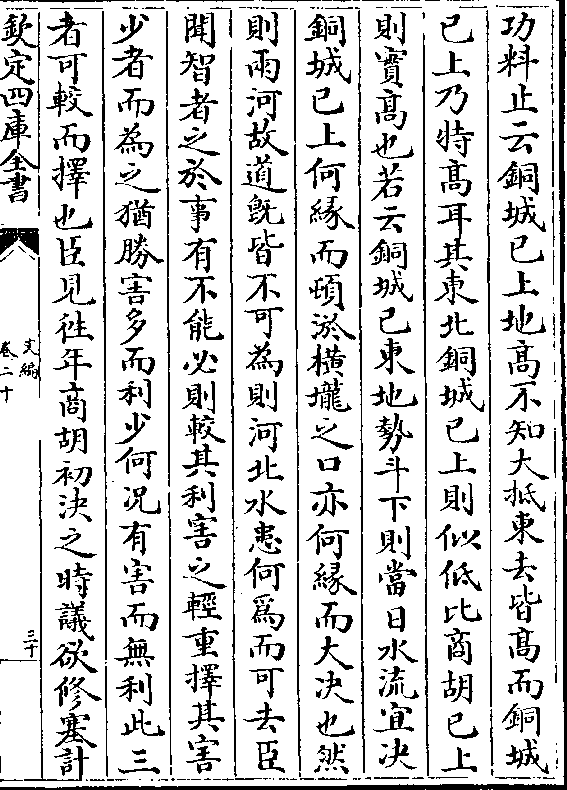 功料止云銅城已上地髙不知大抵東去皆髙而銅城
已上乃特髙耳其東北銅城已上則似低比商胡已上
則實髙也若云銅城已東地勢斗下則當日水流宜決
銅城已上何緣而頓淤横壠之口亦何緣而大决也然
則兩河故道旣皆不可為則河北水患何爲而可去臣
聞智者之於事有不能必則較其利害之輕重擇其害
少者而為之猶勝害多而利少何况有害而無利此三
者可較而擇也臣見徃年商胡初決之時議欲修塞計
欽定四庫全書
文編
卷二十
三十